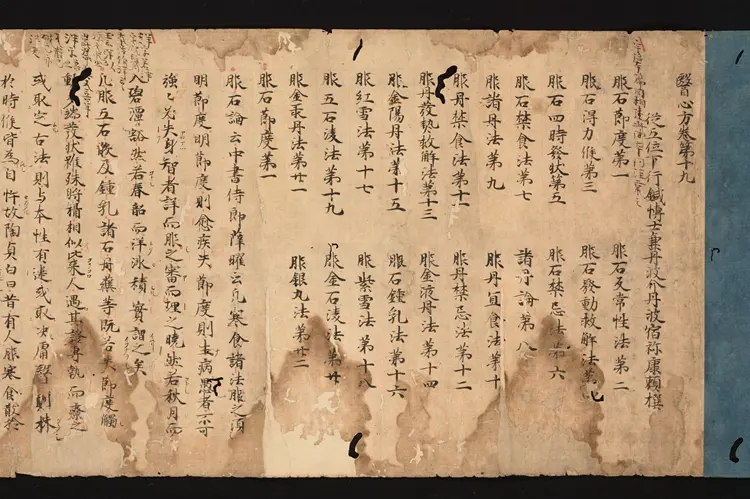 醫心方卷第十九
從五位下行鍼博士兼丹波介丹波宿祢康頼撰
服石節度第一　服石反常性法第二
服石得力候第三　服石發動救解法第四
服石四時發狀第五　服石禁忌法第六
服石禁食法第七　諸丹論第八
服諸丹法第九　服丹宜食法第十
服丹禁食法第十一　服丹禁忌法第十二
服丹發熱救解法第十三　服金液丹法第十四
服金陽丹法第十五　服石鍾乳法第十六
服紅雪法第十七　服紫雪法第十八
服五石湌法第十九　服金石湌法第廿
服金汞丹法第廿一　服銀丸法第廿二
服石節度第一
服石論云中書侍郎薛曜云凡寒食諸法服之須
明節度明節度則愈疾失節度則生病愚者不可
強々必失身智者詳而服之審而理之曉然若秋月而
入碧潭豁然若春韶而泮冰積實謂之矣
凡服五石散及鍾乳諸石丹藥等既若失節度觸
動多端發狀雖殊將攝相似比來人遇其發身熱而療之
或取之古法則与本性有違或取决庸醫則
於時候皆爲自忤故陶貞白曰昔有人服寒食散於